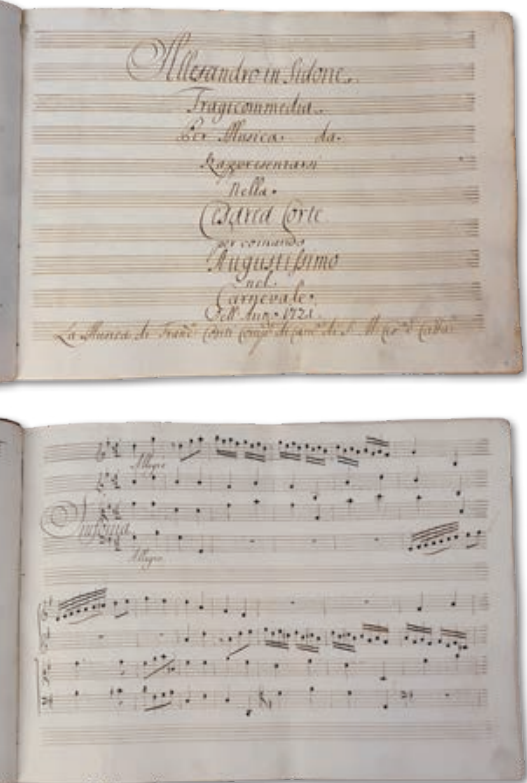 Allesandro in Sidone.
Tragicommedia.
Per Musica da
Rappresentarsi
Nella
Cesarea Corte
per comando
Augustissimo
nel
Carnevale
Dell' 1721.
La Musica di Franc. Conti di di S. M.
Allegro
Sinfonia
Allegro